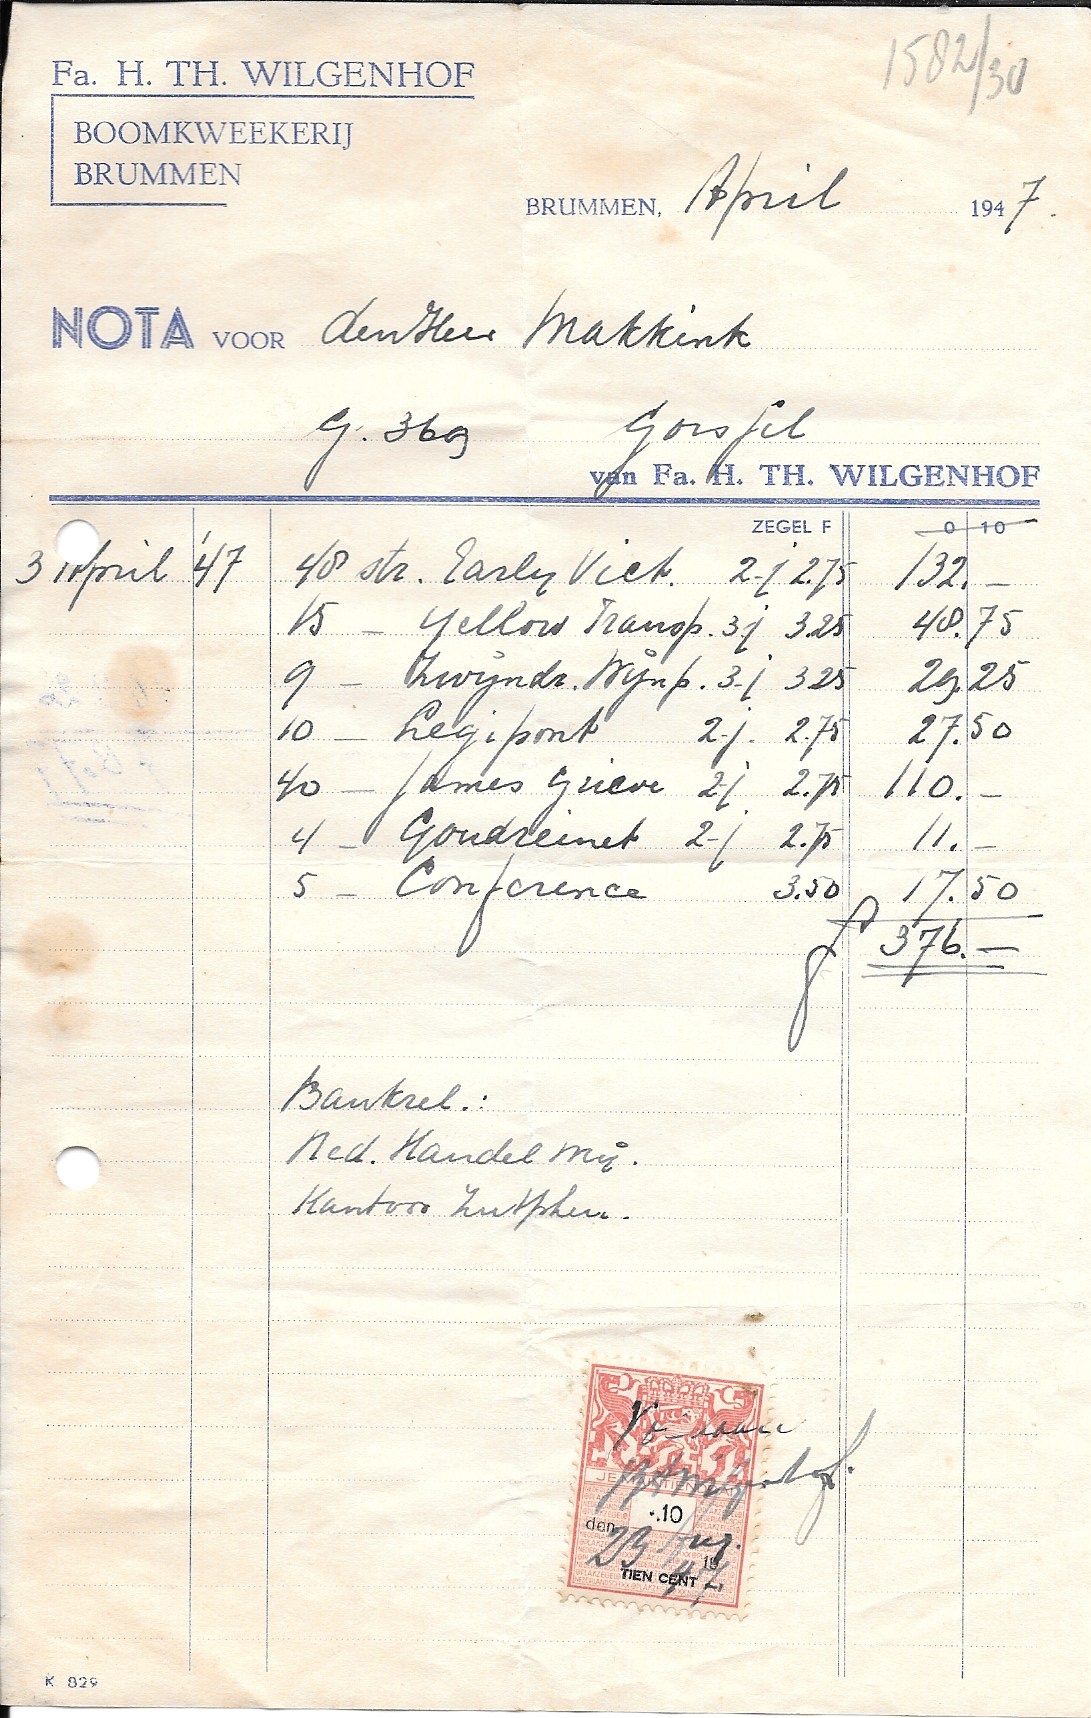 1582/30
Fa. H. TH. WILGENHOF
BOOMKWEEKERIJ
BRUMMEN
BRUMMEN, April 1947.
NOTA VOOR den Heer Makkink
G. 369 Gorssel
van Fa. H. TH. WILGENHOF
ZEGEL F 0 10
3 April '47 48 str. Early Vict. 2-j 2.75 132.-
15 - Yellow Transp. 3-j 3.25 48.75
9 - Zwijndr. Wijnp. 3-j 325 29.25
10 - Legipont 2-j. 2.75 27.50
40 - James Grieve 2-j 2.75 110.-
4 - Goudreinet 2-j 2.75 11.-
5 - Conference 3.50 17.50
f 376.-
Bankrel.:
Ned. Handel Mij.
Kantoor Zutphen.
Voldaan
.10
den 23 Aug. 1947
TIEN CENT
K 829